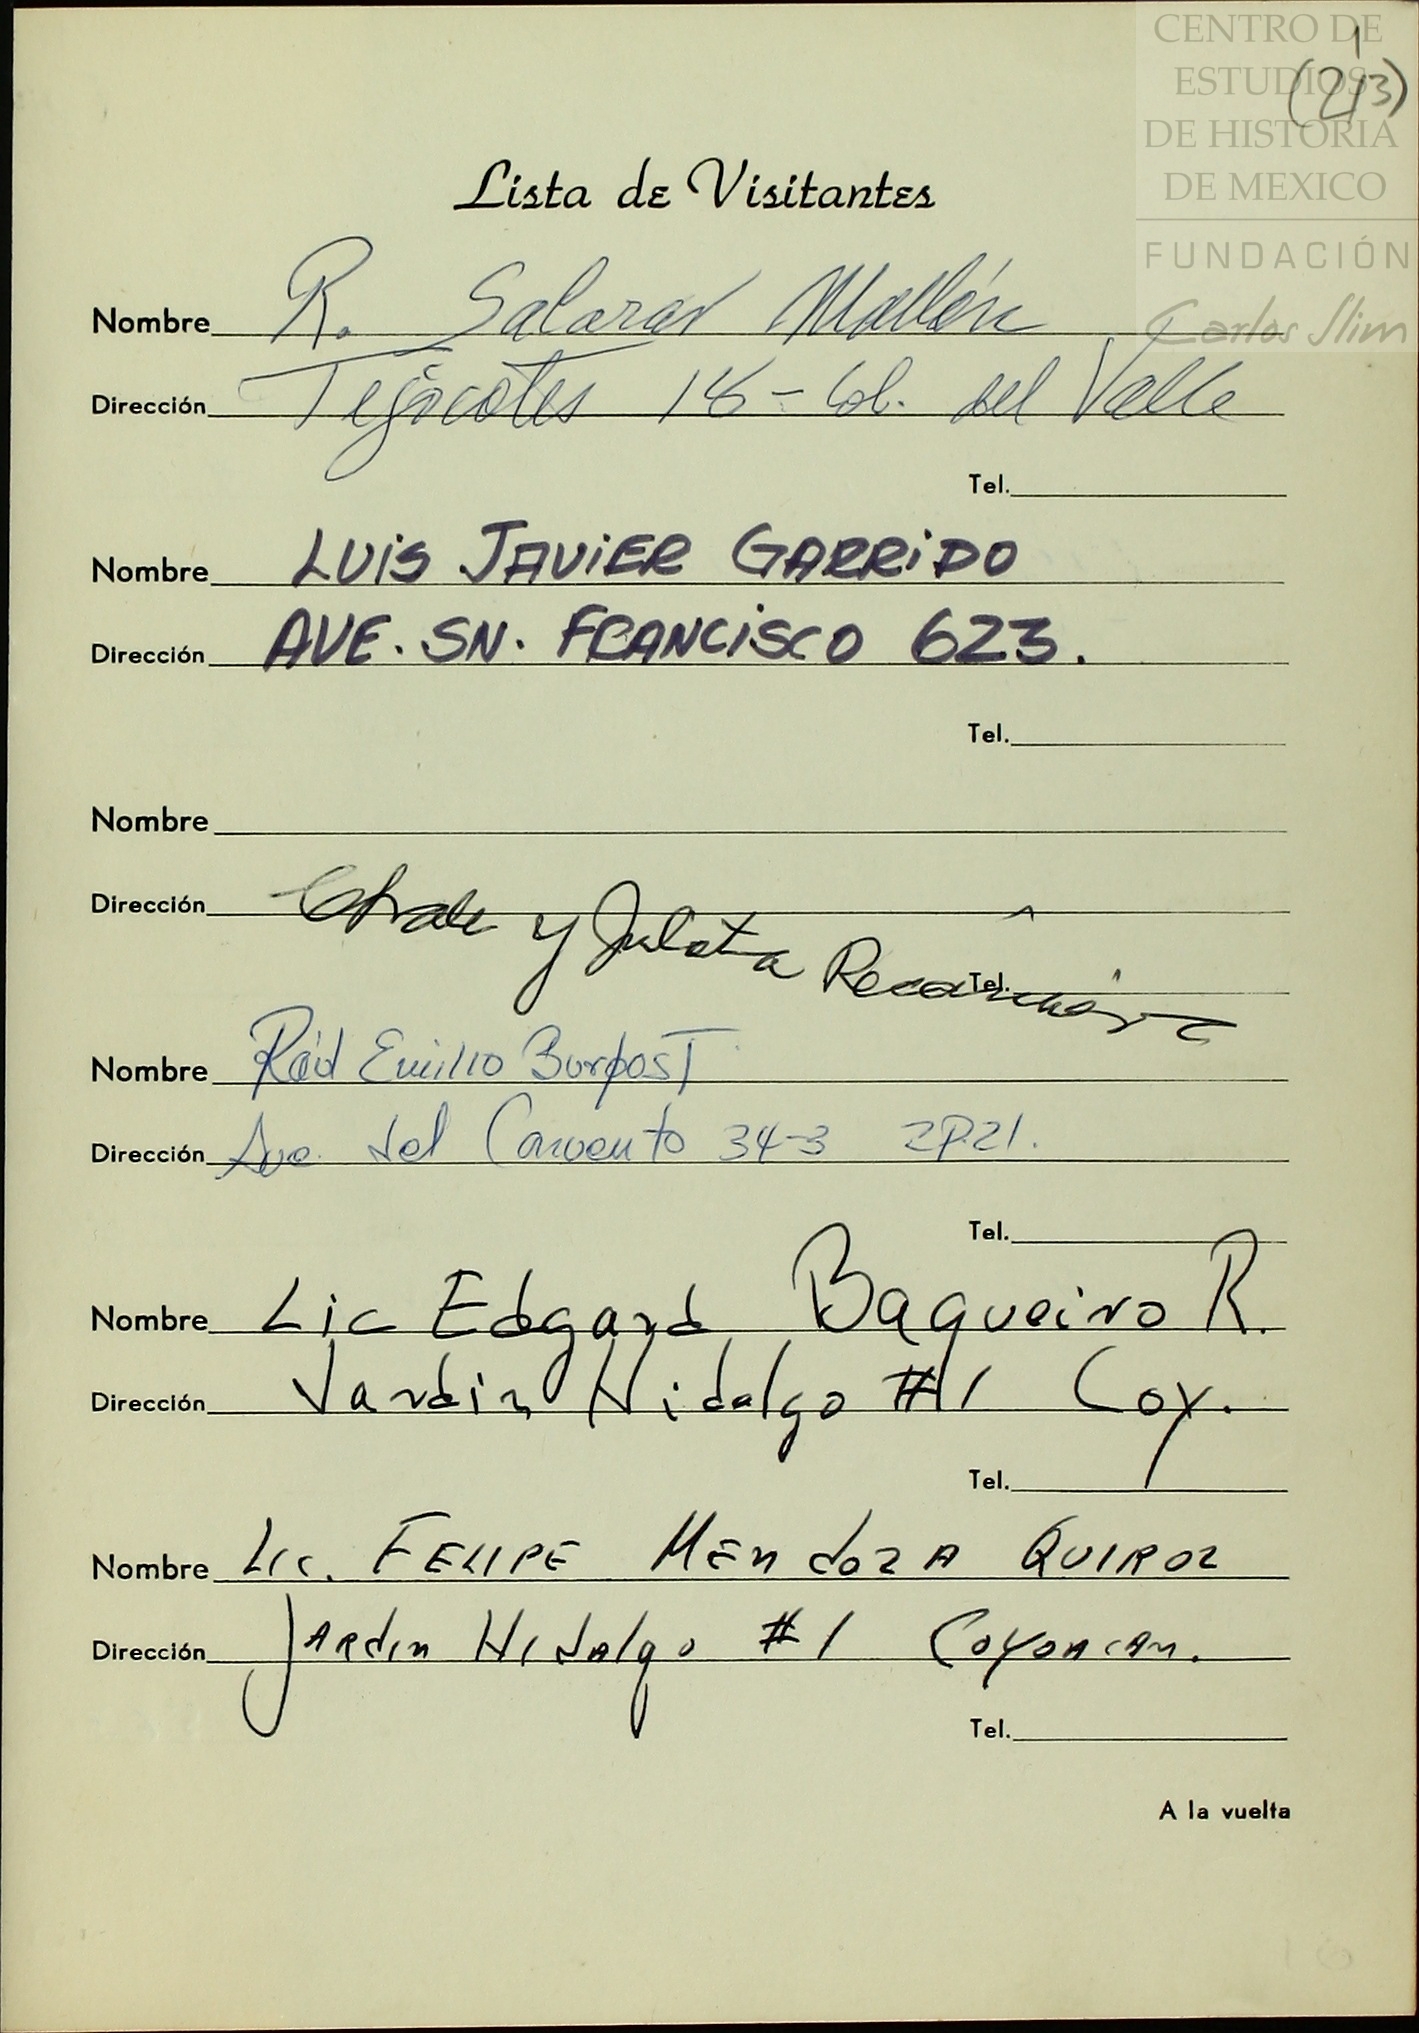 CENTRO DE
ESTUDIOS
DE HISTORIA
DE MEXICO
FUNDACIÓN
Carlos Slim
Lista de Visitantes
Nombre R. Salazar Mallén
Dirección Tejocotes 18 - Col. del Valle
Tel.
Nombre LUIS JAVIER GARRIDO
Dirección AVE. SN. FRANCISCO 623.
Tel.
Nombre
Dirección
y Julieta
Tel.
Nombre Emilio
Dirección Ave. del Convento 34-3 ZP.21.
Tel.
Nombre Lic Edgard Baqueiro R.
Dirección Jardin Hidalgo #1 Coy.
Tel.
Nombre Lic. FELIPE MENdOZA QUIROZ
Dirección JARdin HIdAlgo #1 COYOACAN.
Tel.
A la vuelta